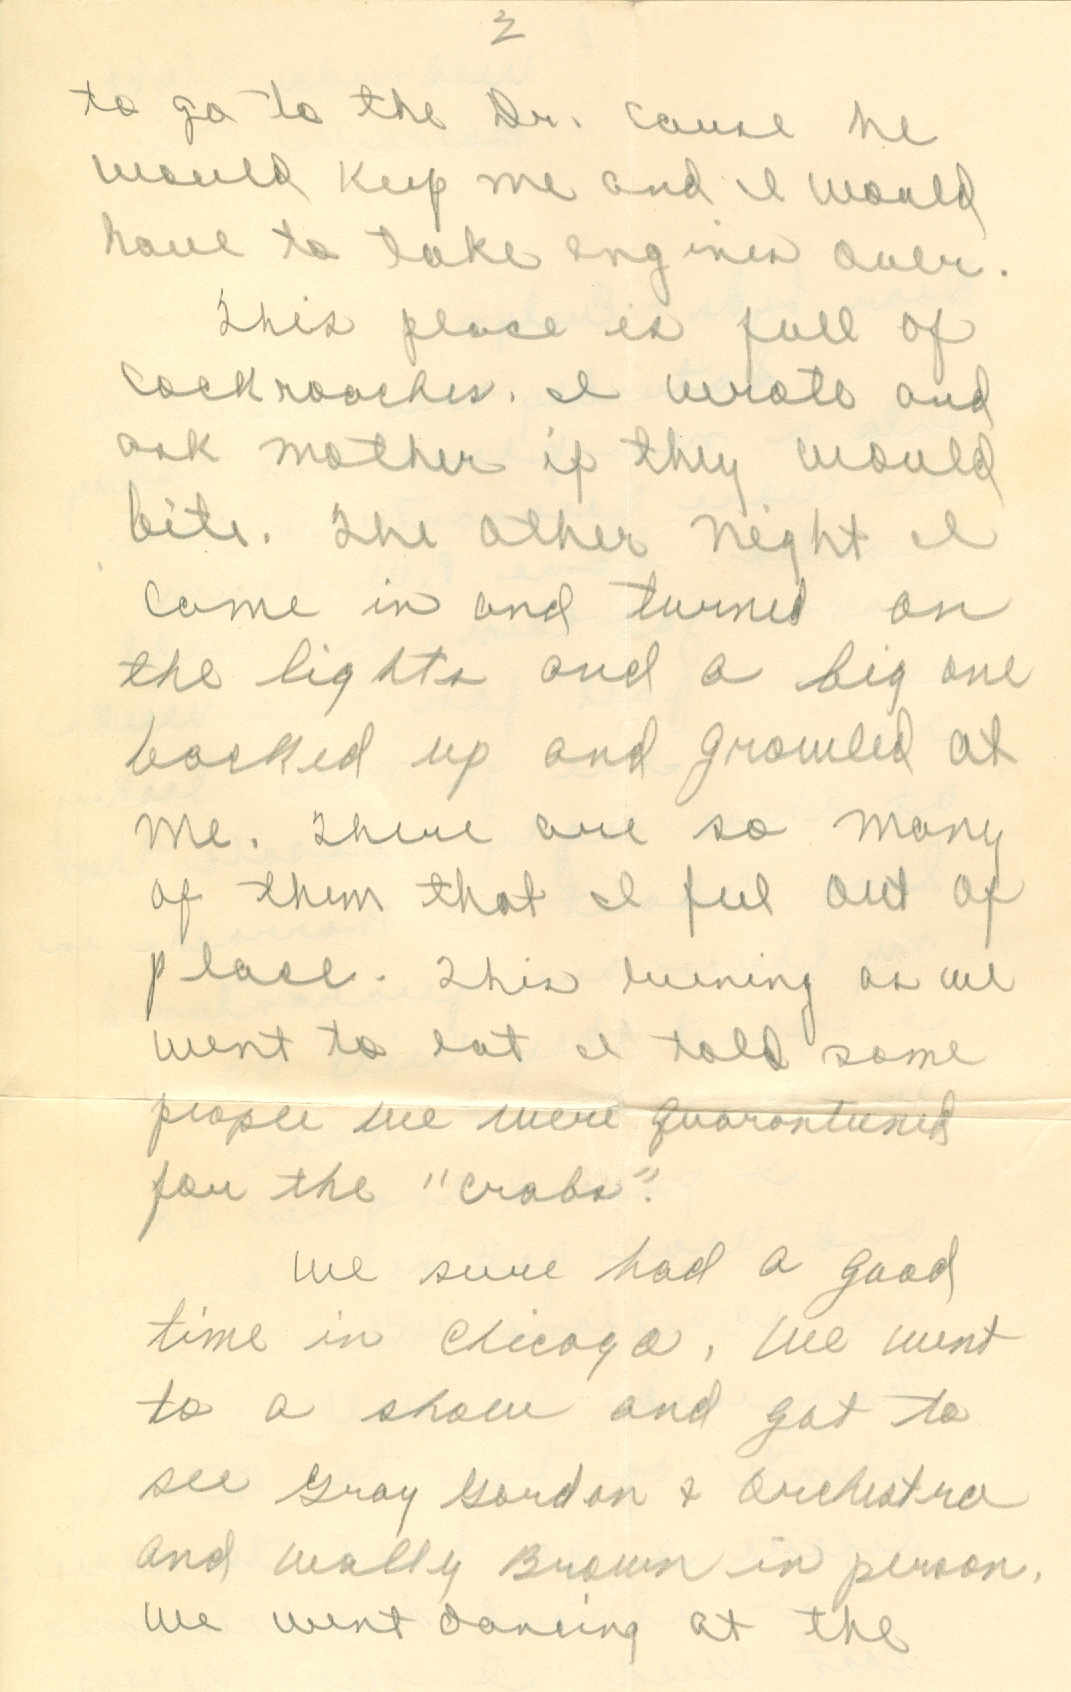 2
to go to the Dr. cause he
would keep me and I would
have to take engines over.
This place is full of
cockroaches. I wrote and
ask mother if they would
bite. The other night I
came in and turned on
the lights and a big one
backed up and growled at
me. There are so many
of them that I feel out of
place. This evening as we
went to eat I told some
people we were quarantined
for the "crabs".
We sure had a good
time in Chicago. We went
to a show and got to
see Gray Gordon & Orchestra
and Wally Brown in person.
We went dancing at the